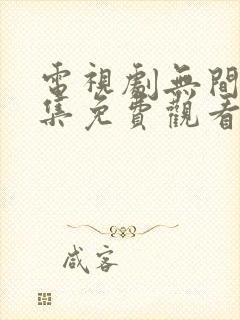 電視劇無間
集免費觀看
咸客